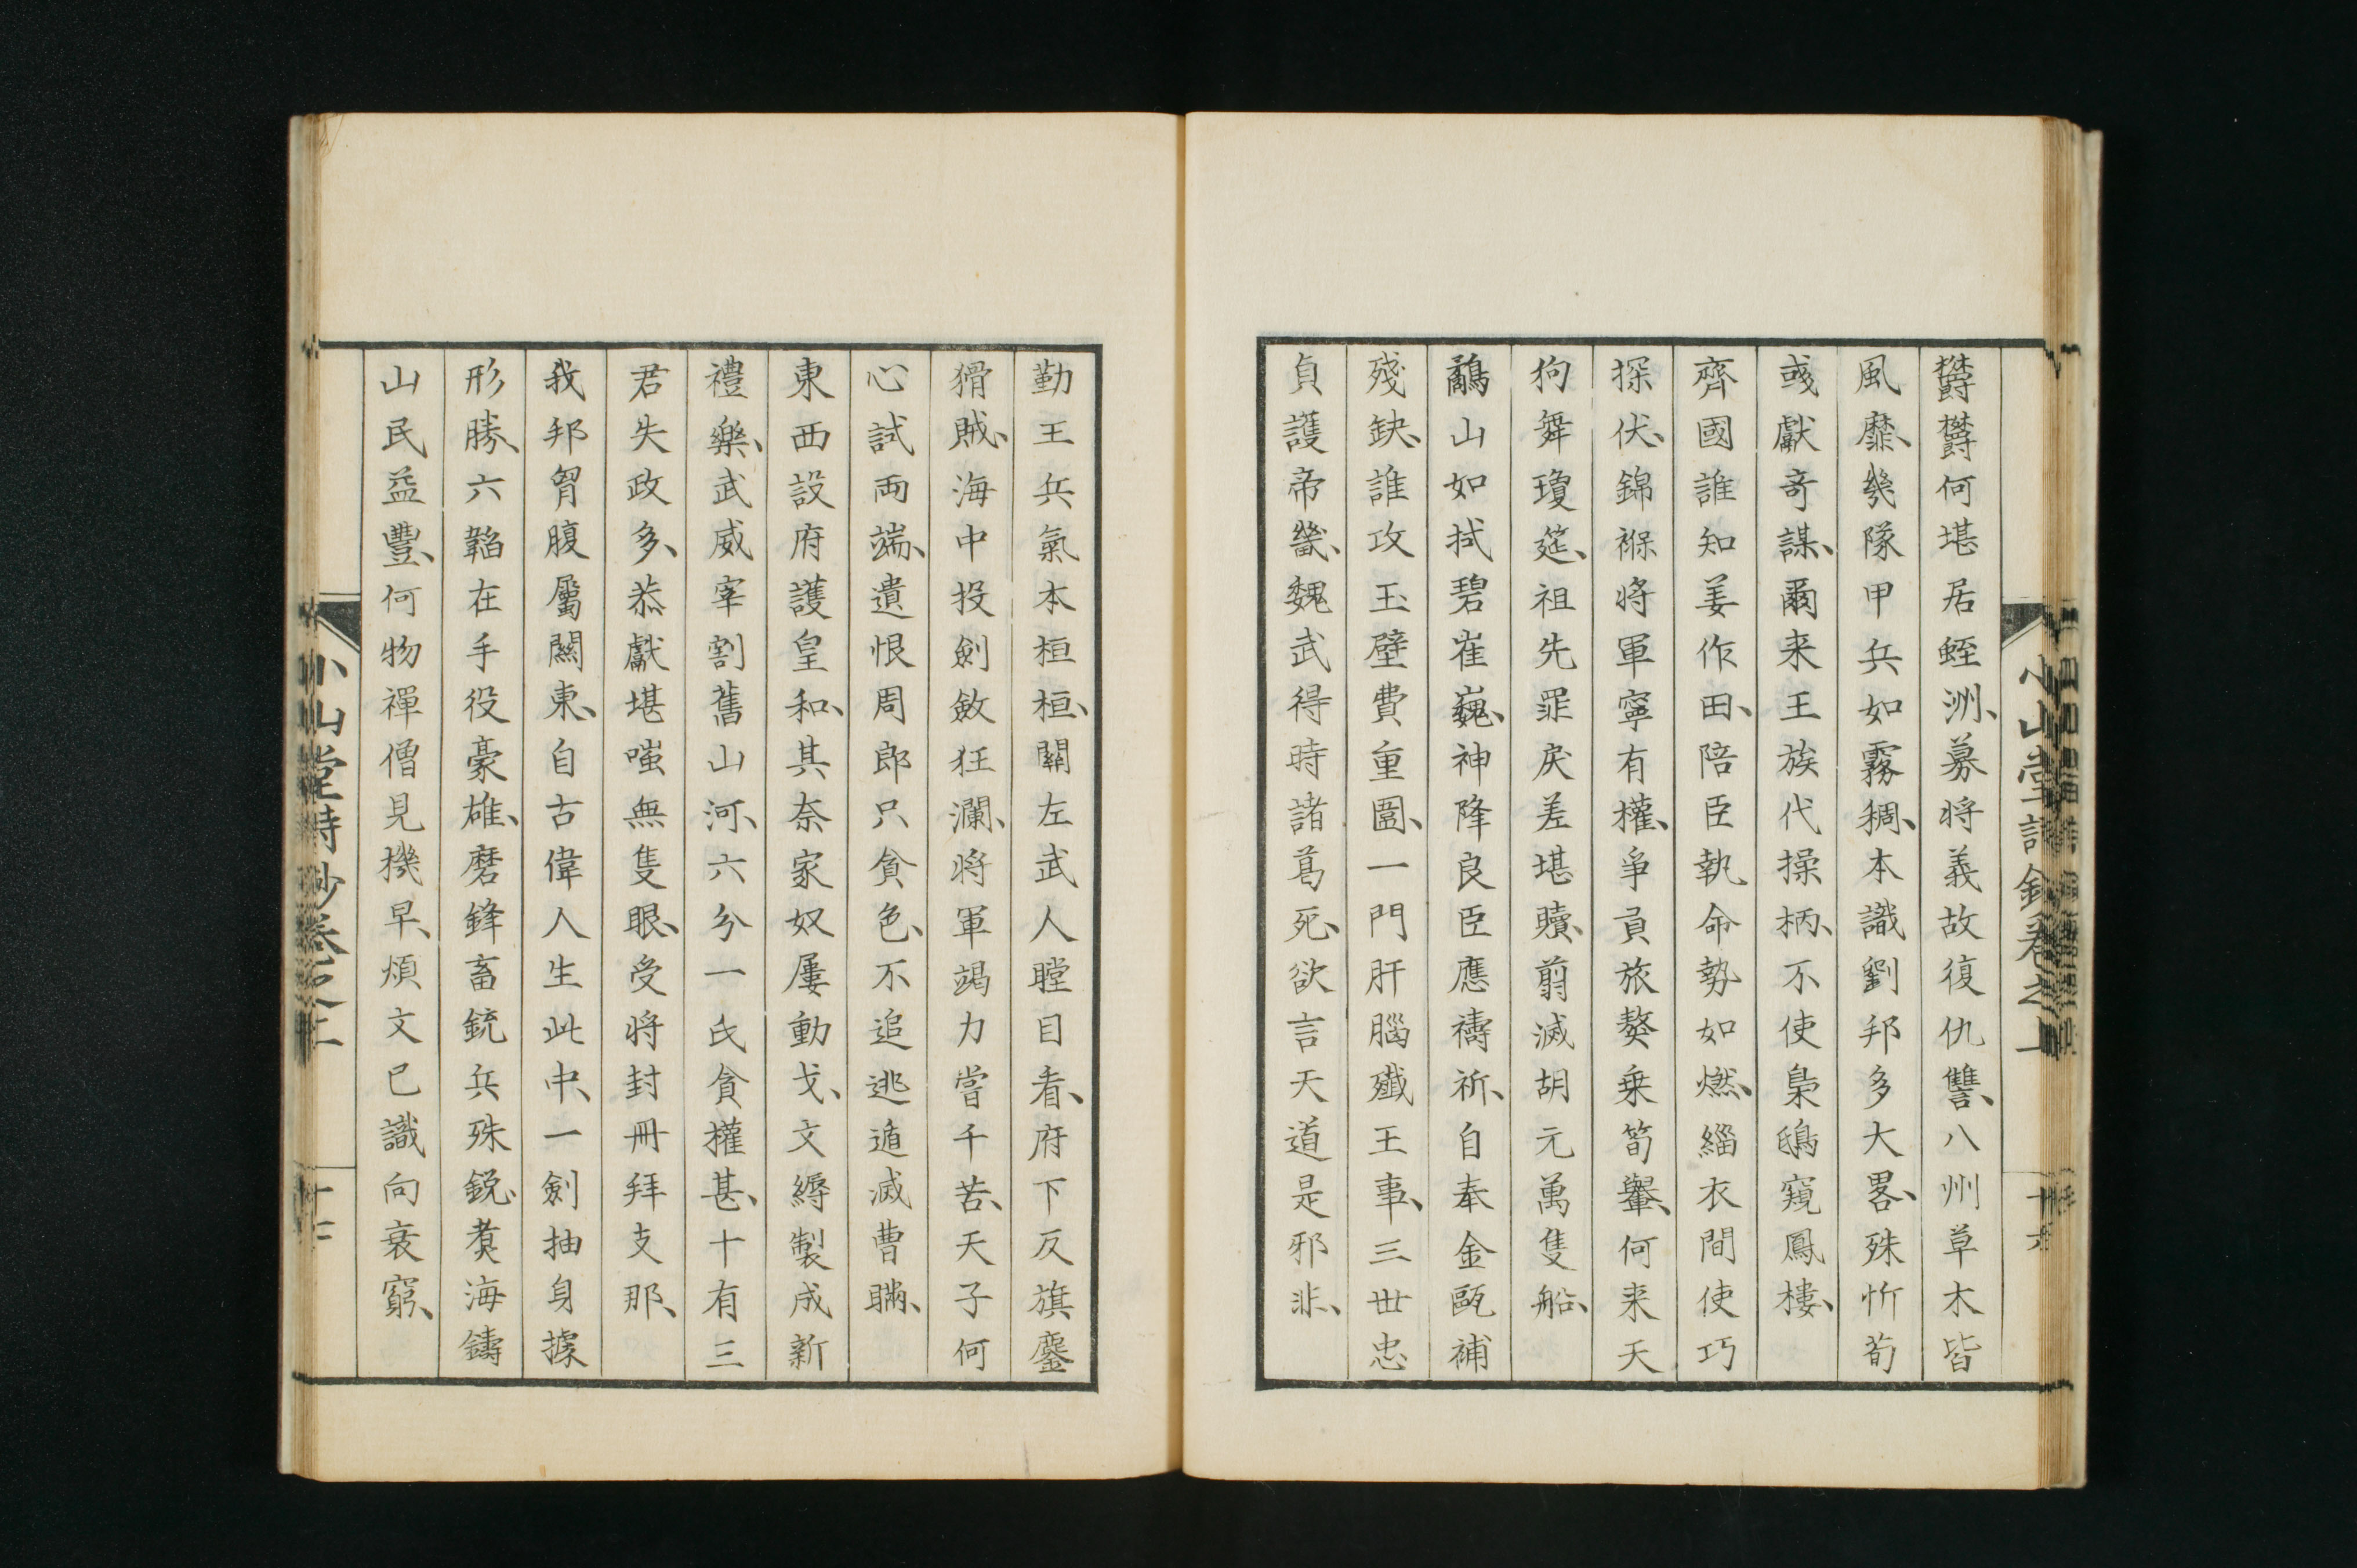 小山堂詩鈔卷之二
十六
欝欝何堪居蛭洲、募将義故復仇讐、八州草木皆
風靡、幾隊甲兵如霧稠、本識劉邦多大畧、殊忻荀
彧獻奇謀、爾来王族代操柄、不使梟鴟窺鳳樓、
齊國誰知姜作田、陪臣執命勢如燃、緇衣間使巧
探伏、錦褓将軍寧有權、爭貢旅獒乗筍轝、何来天
狗舞瓊筵、祖先罪戻差堪贖、翦滅胡元萬隻船、
鷸山如拭碧崔巍、神降良臣應禱祈、自奉金甌補
殘缺、誰攻玉壁費重圍、一門肝腦殱王事、三世忠
貞護帝畿、魏武得時諸葛死、欲言天道是邪非、
勤王兵氣本桓桓、關左武人瞠目看、府下反旗鏖
猾賊、海中投劍斂狂瀾、将軍竭力嘗千苦、天子何
心試両端、遺恨周郎只貪色、不追逃遁滅曹瞞、
東西設府護皇和、其奈家奴屢動戈、文縟製成新
禮樂、武威宰割舊山河、六分一氏貪權甚、十有三
君失政多、恭獻堪嗤無隻眼、受将封冊拜支那、
我邦胷腹屬關東、自古偉人生此中、一劍抽身據
形勝、六韜在手役豪雄、磨鋒畜銃兵殊鋭、煮海鑄
山民益豐、何物禪僧見機早、煩文已識向衰窮、
小山堂詩鈔卷之二
十七